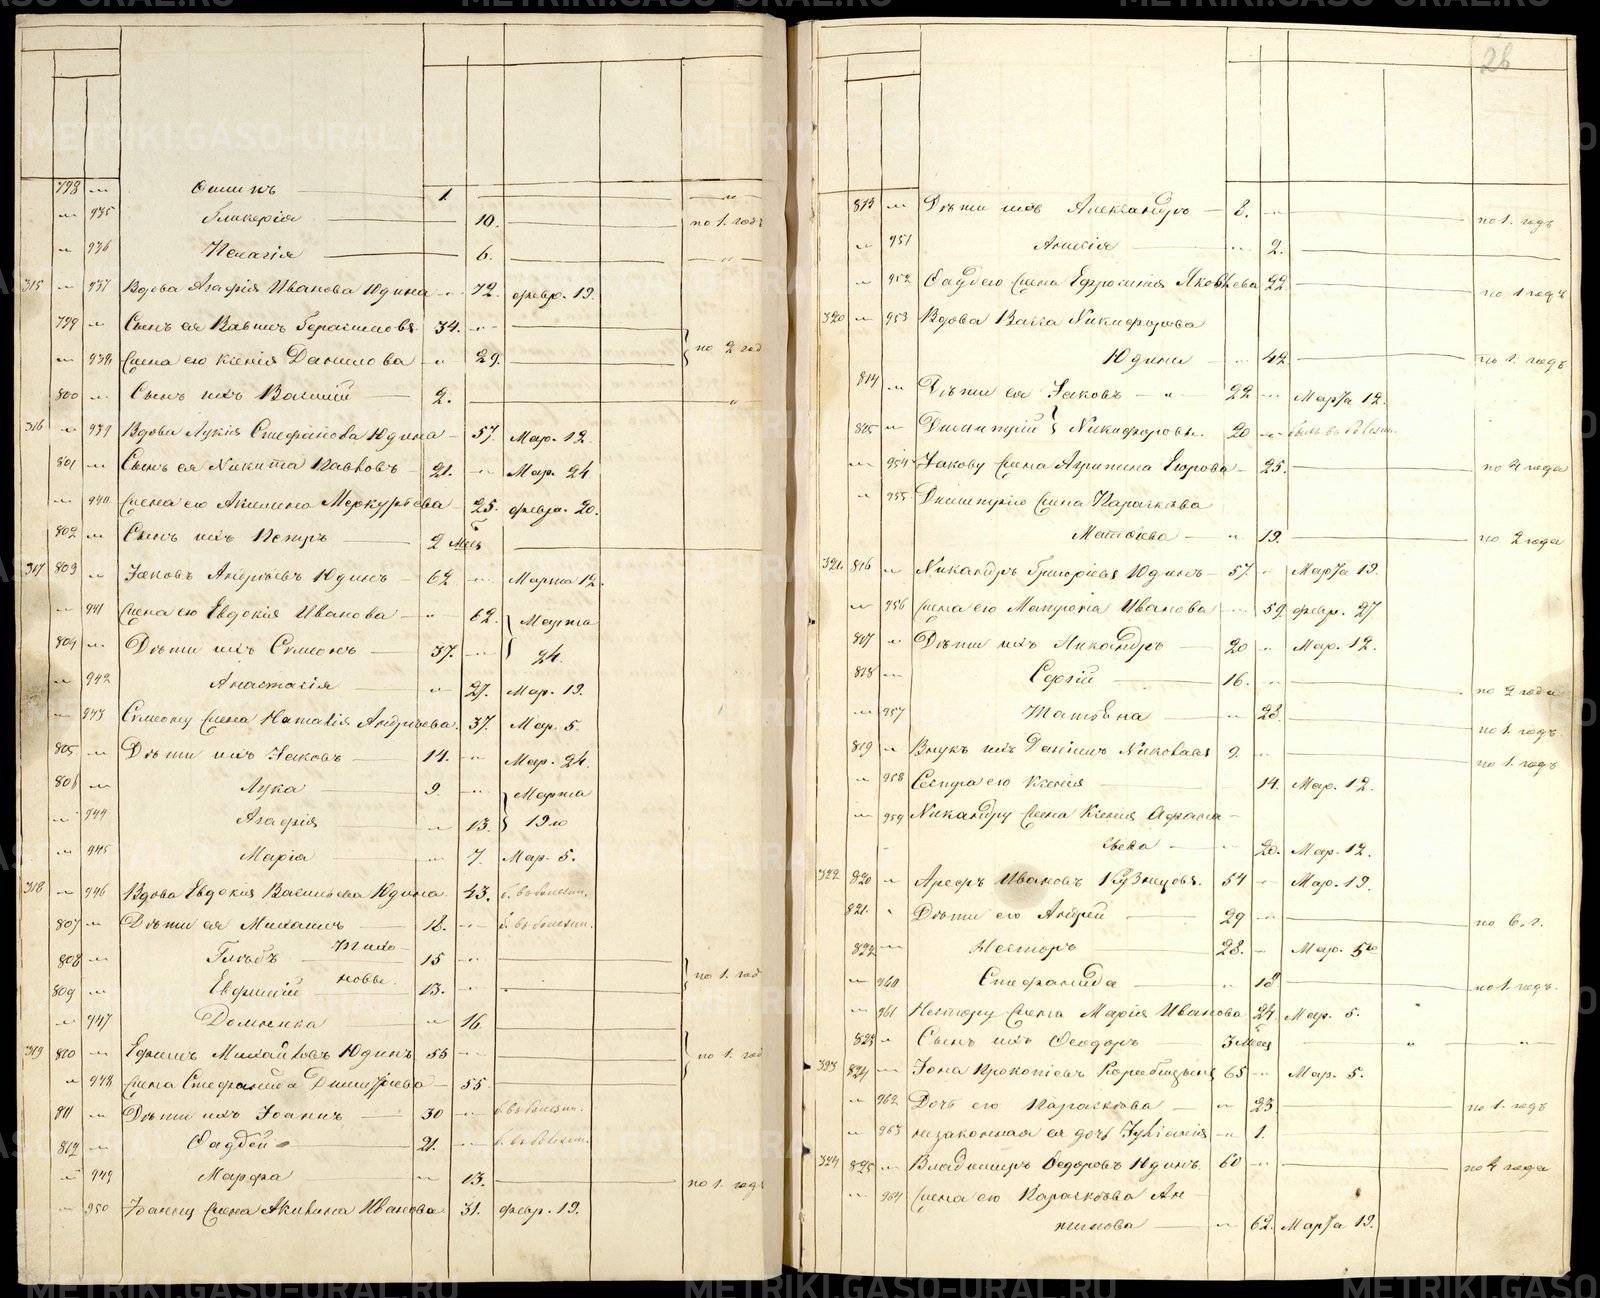 798 " Филипъ 1. "
" 935 Гликерія 10. по 1. году
" 936 Пелагія 6. "
315 " 937 Вдова Агафія Иванова Юдина " 72. февр. 19.
799 " Сынъ ея Герасимовъ 34. "
" 938 Жена его Ксенія Данилова " 29. по 2 год
800 " Сынъ ихъ Василій 2. "
316 " 939 Вдова Лукія Стефанова Юдина 57. Мар. 12.
801 " Сынъ ея Никита Павловъ 21. " Мар. 24
" 940 Жена его Акилина Меркурьева 25. февр. 20.
802 " Сынъ ихъ Петръ 2 мес
317 803 " Іаковъ Андреевъ Юдинъ 62 " Марта 12.
" 941 Жена его Евдокия Иванова " 62. Марта
804 " Дѣти ихъ Симеонъ 37. " 24.
" 942 Анастасія " 27. Мар. 19.
" 943 Симеону жена Наталія Андреева 37. Мар. 5.
805 " Дѣти ихъ Іаковъ 14. " Мар. 24.
806 " Лука 9. " Марта
" 944 Агафія " 13. 19го
" 945 Марія " 7. Мар. 5.
318 " 946 Вдова Евдокия Васильева Юдина 43. б. въ болезни.
807 " Дѣти ея Михаилъ 18. " б. въ болезни.
808 " Глѣбъ Тихо- 15 "
809 " Евфимій новы. 13. " по 1. год
" 947 Домника " 16.
319 810 " Ефимъ Михайловъ Юдинъ 55 " по 1. год
" 948 Жена Стефанида Димитріева 55
811 " Дѣти ихъ Іоаннъ 30 " б. въ болезни.
812 " Фаддей 21. " б. въ болезни.
" 949 Марфа " 13. по 1. году
" 950 Іоанну жена Акилина Иванова 31. февр. 19.
28
813 " Дѣти ихъ Александръ 8. " по 1. годъ
" 951 Анисія " 2.
" 952 Фаддею жена Ефросинія Яковлева 22 по 1 годъ
320 " 953 Вдова Васса Никифорова
Юдина " 42 по 1. годъ
814 " Дѣти ея Іаковъ " 22 " Марта 12.
815 " Димитрій } Никифоровы. 20 " былъ въ болезни.
" 954 Іакову жена Агрипина Егорова 25. по 4 года
" 955 Димитрію жена Параскева
Матвѣева " 19. по 2 года
321. 816 " Никандръ Григорьевъ Юдинъ 57. " Марта 19.
" 956 Жена его Матрона Иванова " 59 февр. 27
817 " Дѣти ихъ Никандръ 20 " Мар. 12.
818 " Сергій 16. " по 2 года
" 957 Татіана " 28. по 1. годъ
819 " Внукъ ихъ Даніилъ Николаевъ 9. " по 1. годъ
" 958 Сестра его Ксенія 14. Мар. 12.
" 959 Никандру жена Ксенія Афана-
сьева " 20. Мар. 12.
322 820 " Арефъ Ивановъ Кузнецовъ. 54 " Мар. 19.
821. " Дѣти его Андрей 29 " по 6. г.
822 " Несторъ 28. " Мар. 5го
" 960 Стефанида " 18 по 1. годъ.
" 961 Нестору жена Марія Иванова 24. Мар. 5.
823 " Сынъ ихъ Феодоръ 3 мес " "
323 824 " Іона Прокопьевъ 65 " Мар. 5.
" 962 Дочь его Параскева " 23 по 1. годъ
" 963 незаконная ея дочь Іуліанія " 1.
324 825 " Владимиръ Федоровъ Юдинъ. 60 " по 4 года
" 964 Жена его Параскева Ан-
типова " 62. Марта 19.
METRIKI.GASO-URAL.RU